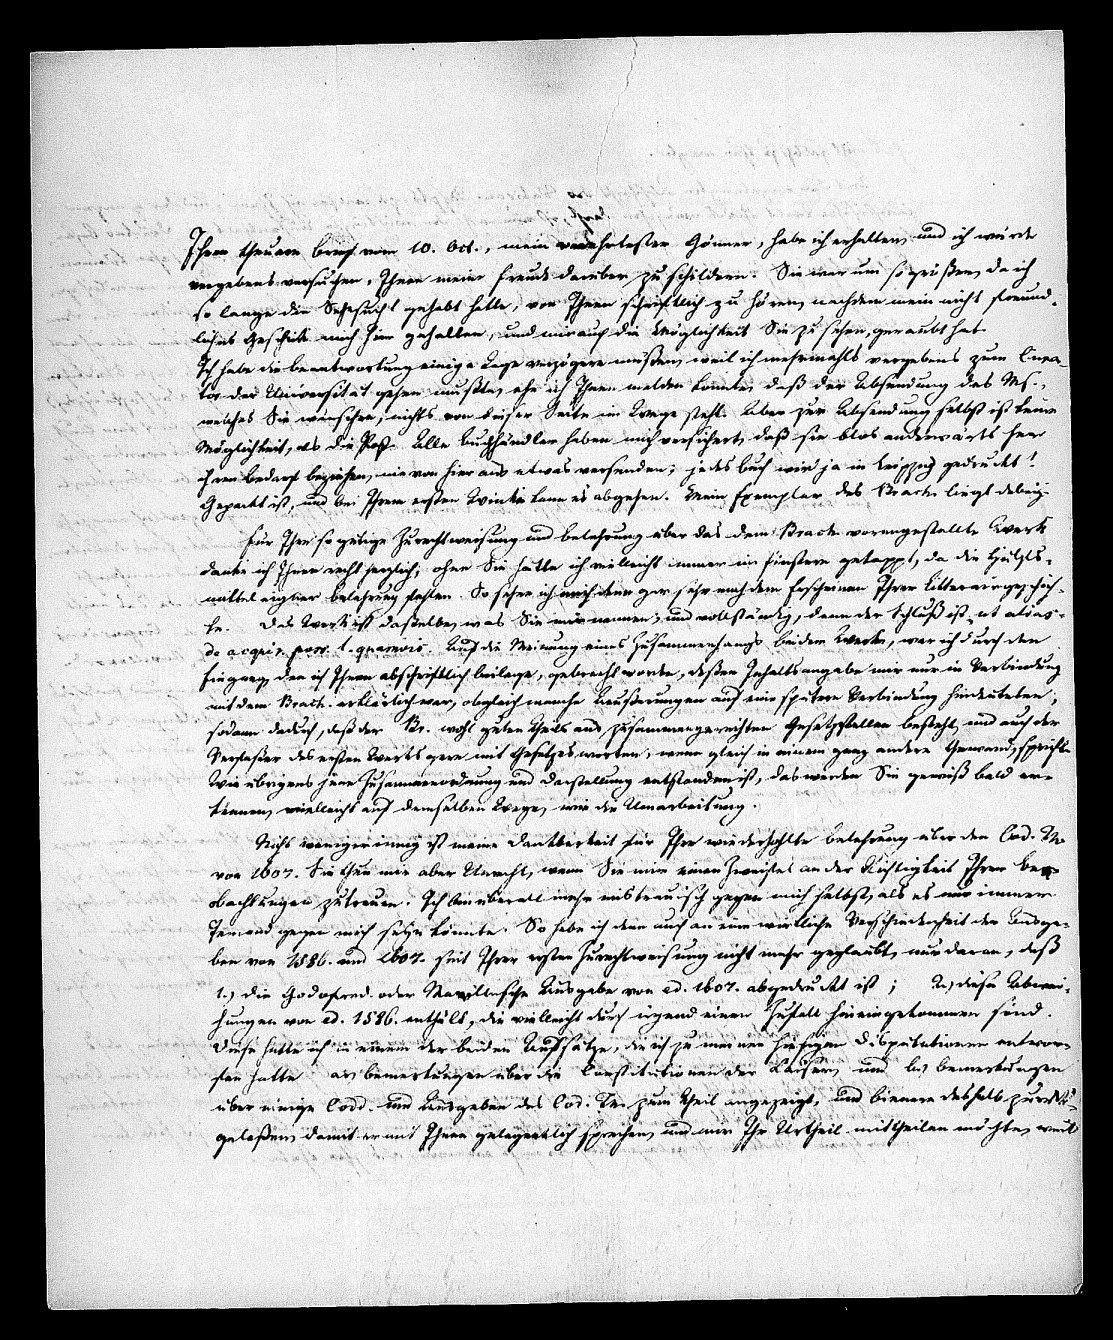 Ihren theuren Brief vom 10. Oct., mein verehrtester Gönner, habe ich erhalten, und ich würde
vergebens versuchen, Ihnen meine Freude darüber zu schildern. Sie war um so größer, da ich
so lange die Sehnsucht gehabt hatte, von Ihnen schriftlich zu hören, nachdem mein nicht freund-
liches Geschick mich hier gehalten, und mir auch die Möglichkeit Sie zu sehen, geraubt hat.
Ich habe die Beantwortung einige Tage verzögern müßen, weil ich mehrmahls vergebens zum Cura-
tor der Universität gehen mußte, ehe ich Ihnen melden konnte, daß der Absendung des Ms.,
welches Sie wünschen, nichts von dieser Seite im Wege steht. Aber zur Absendung selbst ist keine
Möglichkeit, als die Post. Alle Buchhändler haben mich versichert, daß sie blos anderwärts her
ihren Bedarf beziehen, nie von hier aus etwas versenden; jedes Buch wird ja in Leipzig gedruckt!
Gepackt ist, und bei Ihrem ersten Winke kann es abgehen. Mein Exemplar des Brach. liegt dabei.
Für Ihre so gütige Zurechtweisung und Belehrung über das dem Brach. vorangestellte Werk
danke ich Ihnen recht herzlich; ohne Sie hätte ich vielleicht immer im Finstern getappt, da die Hülfs-
mittel eigner Belehrung fehlen. So sehne ich mich denn gar sehr nach dem Erscheinen Ihrer Litterairgeschich-
te. Das Werk ist dasselbe, was Sie mir nennen, und vollständig, denn der Schluß ist ut alias
de acquir. poss. l. quamvis. Auf die Meinung eines Zusammenhangs beider Werke, war ich durch den
Eingang, den ich Ihnen abschriftlich beilege, gebracht worden, deßen Inhaltsangabe mir nur in Verbindung
mit dem Brach. erklärlich war, obgleich manche Äußerungen auf eine spätere Verbindung hindeuteten,
sodann dadurch, daß der Br. wohl guten Theils aus zusammengereihten Gesetzstellen besteht, und auch der
Verfaßer des ersten Werks gern mit Gesetzesworten, wenn gleich in einem ganz andern Gewande, spricht.
Wie übrigens jene Zusammenordnung und Darstellung entstanden ist, das werden Sie gewiß bald er-
kennen, vielleicht auf demselben Wege, wie die Umarbeitung.
Nicht weniger innig ist meine Dankbarkeit für Ihre wiederhohlte Belehrung über den Cod. Th.
von 1607. Sie thun mir aber Unrecht, wenn Sie mir einen Zweifel an der Richtigkeit Ihrer Be-
obachtungen zutrauen. Ich bin überall mehr mistrauisch gegen mich selbst, als es nur immer
Jemand gegen mich seyn könnte. So habe ich denn auch an eine wirkliche Verschiedenheit der Ausga-
ben von 1586. und 1607. seit Ihrer ersten Zurechtweisung nicht mehr geglaubt, nur daran, daß
1.) die Godofred. oder Marvillesche Ausgabe von ed. 1607. abgedruckt ist; 2.) diese Abwei-
chungen von ed. 1586. enthält, die vielleicht durch irgend einen Zufall hineingekommen sind.
Diese hatte ich in einem der beiden Aufsätze, die ich zu meinen hiesigen Disputationen entwor-
fen hatte a) Bemerkungen über die Constitutionen der Kaiser, und b.) Bemerkungen
über einige Codd. und Ausgaben des Cod. Th. zum Theil angezeigt, und
gelaßen, damit er mit Ihnen gelegentlich sprechen, und mir Ihr Urtheil mittheilen möchte, weil